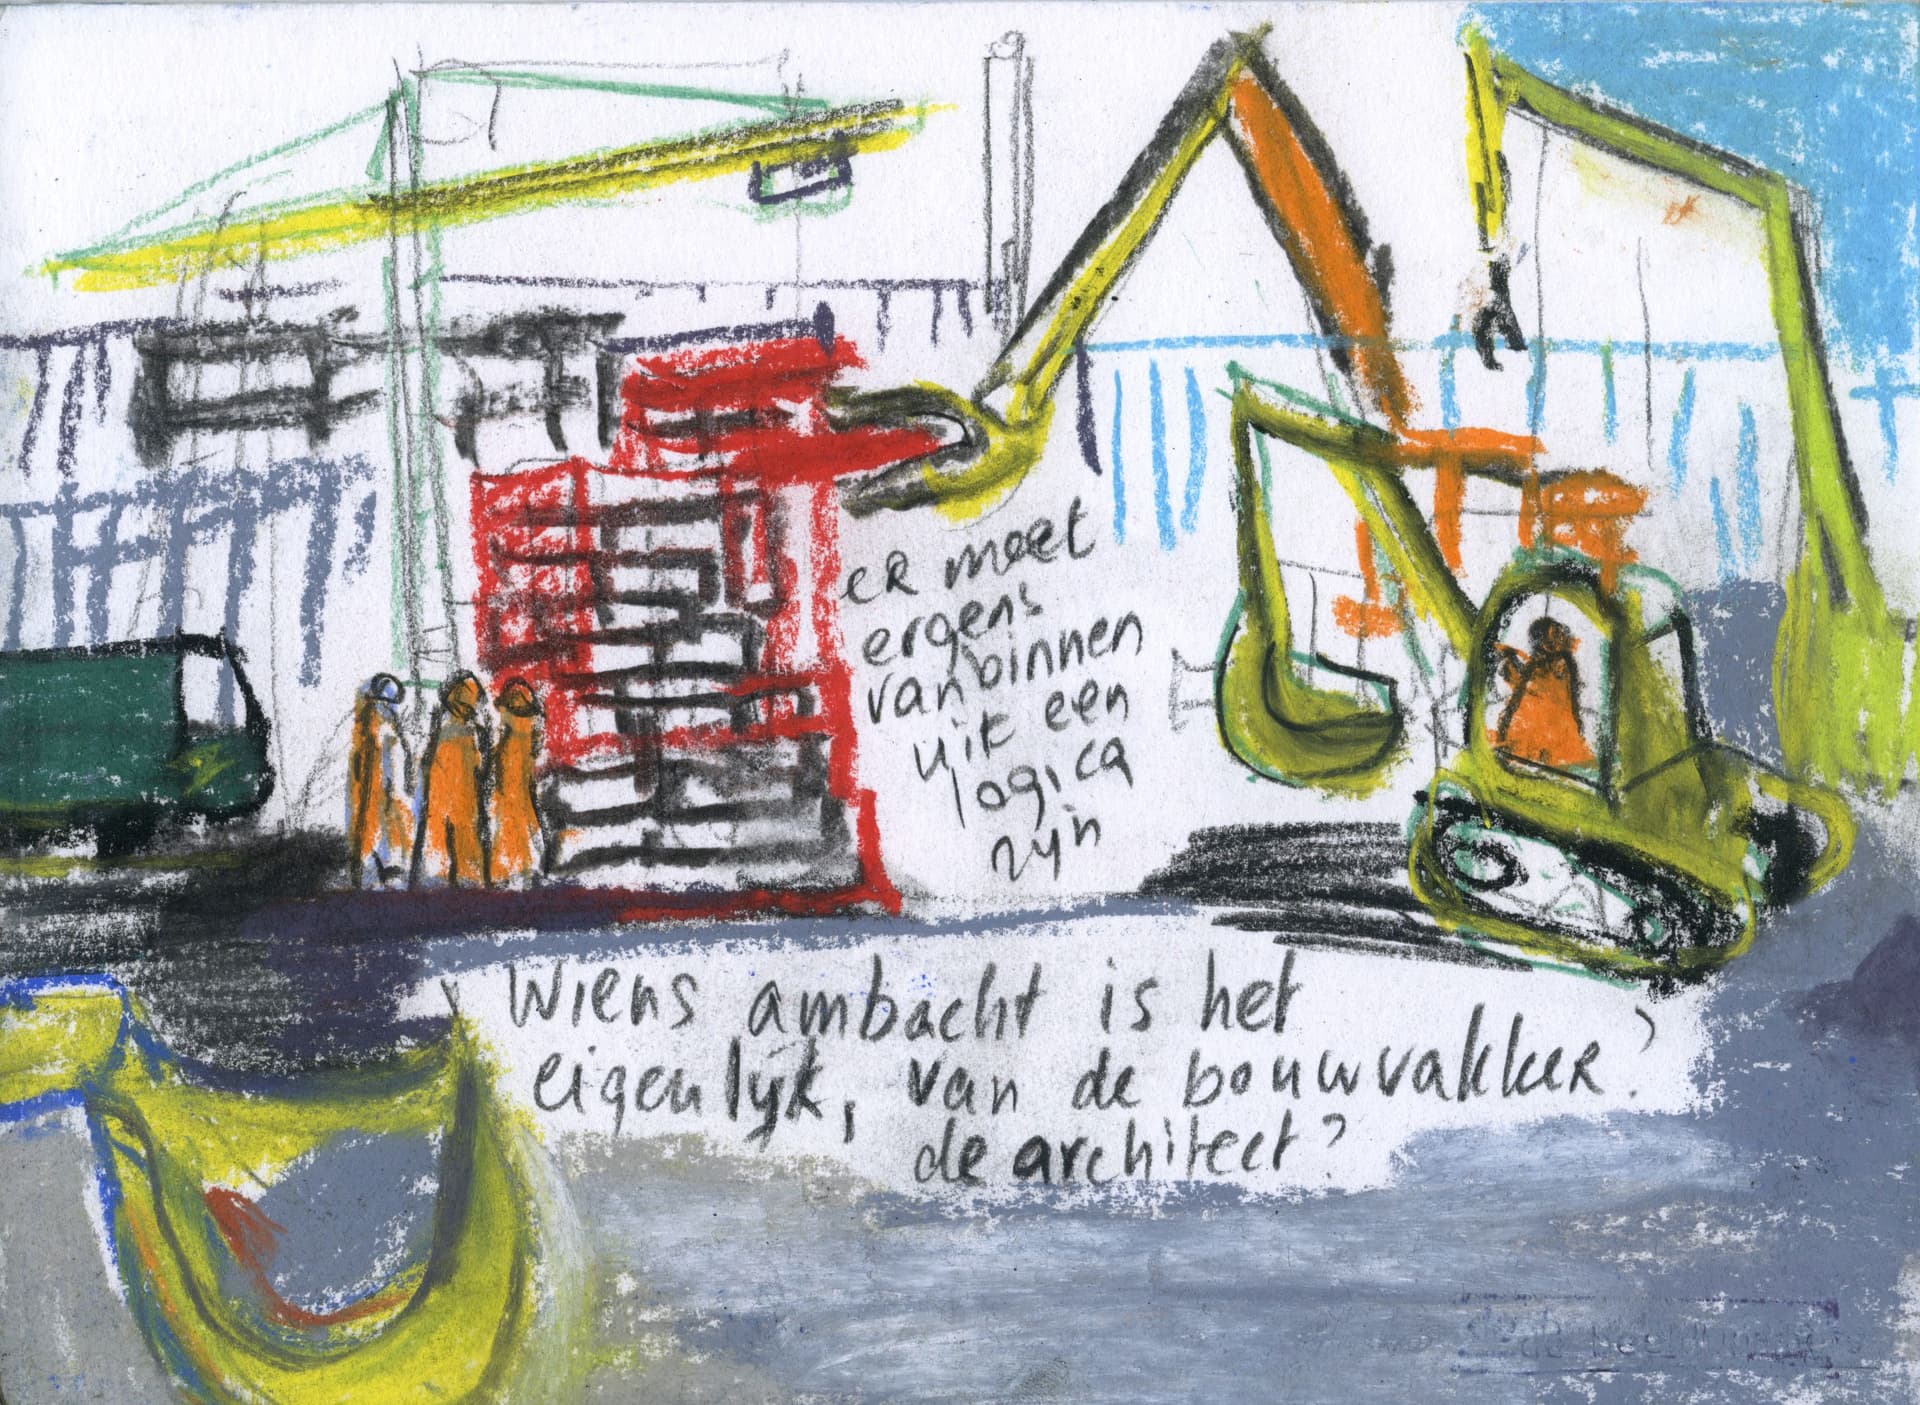 er moet
ergens
van binnen
uit een
logica
zijn
Wiens ambacht is het
eigenlijk, van de bouwvakker?
de architect?